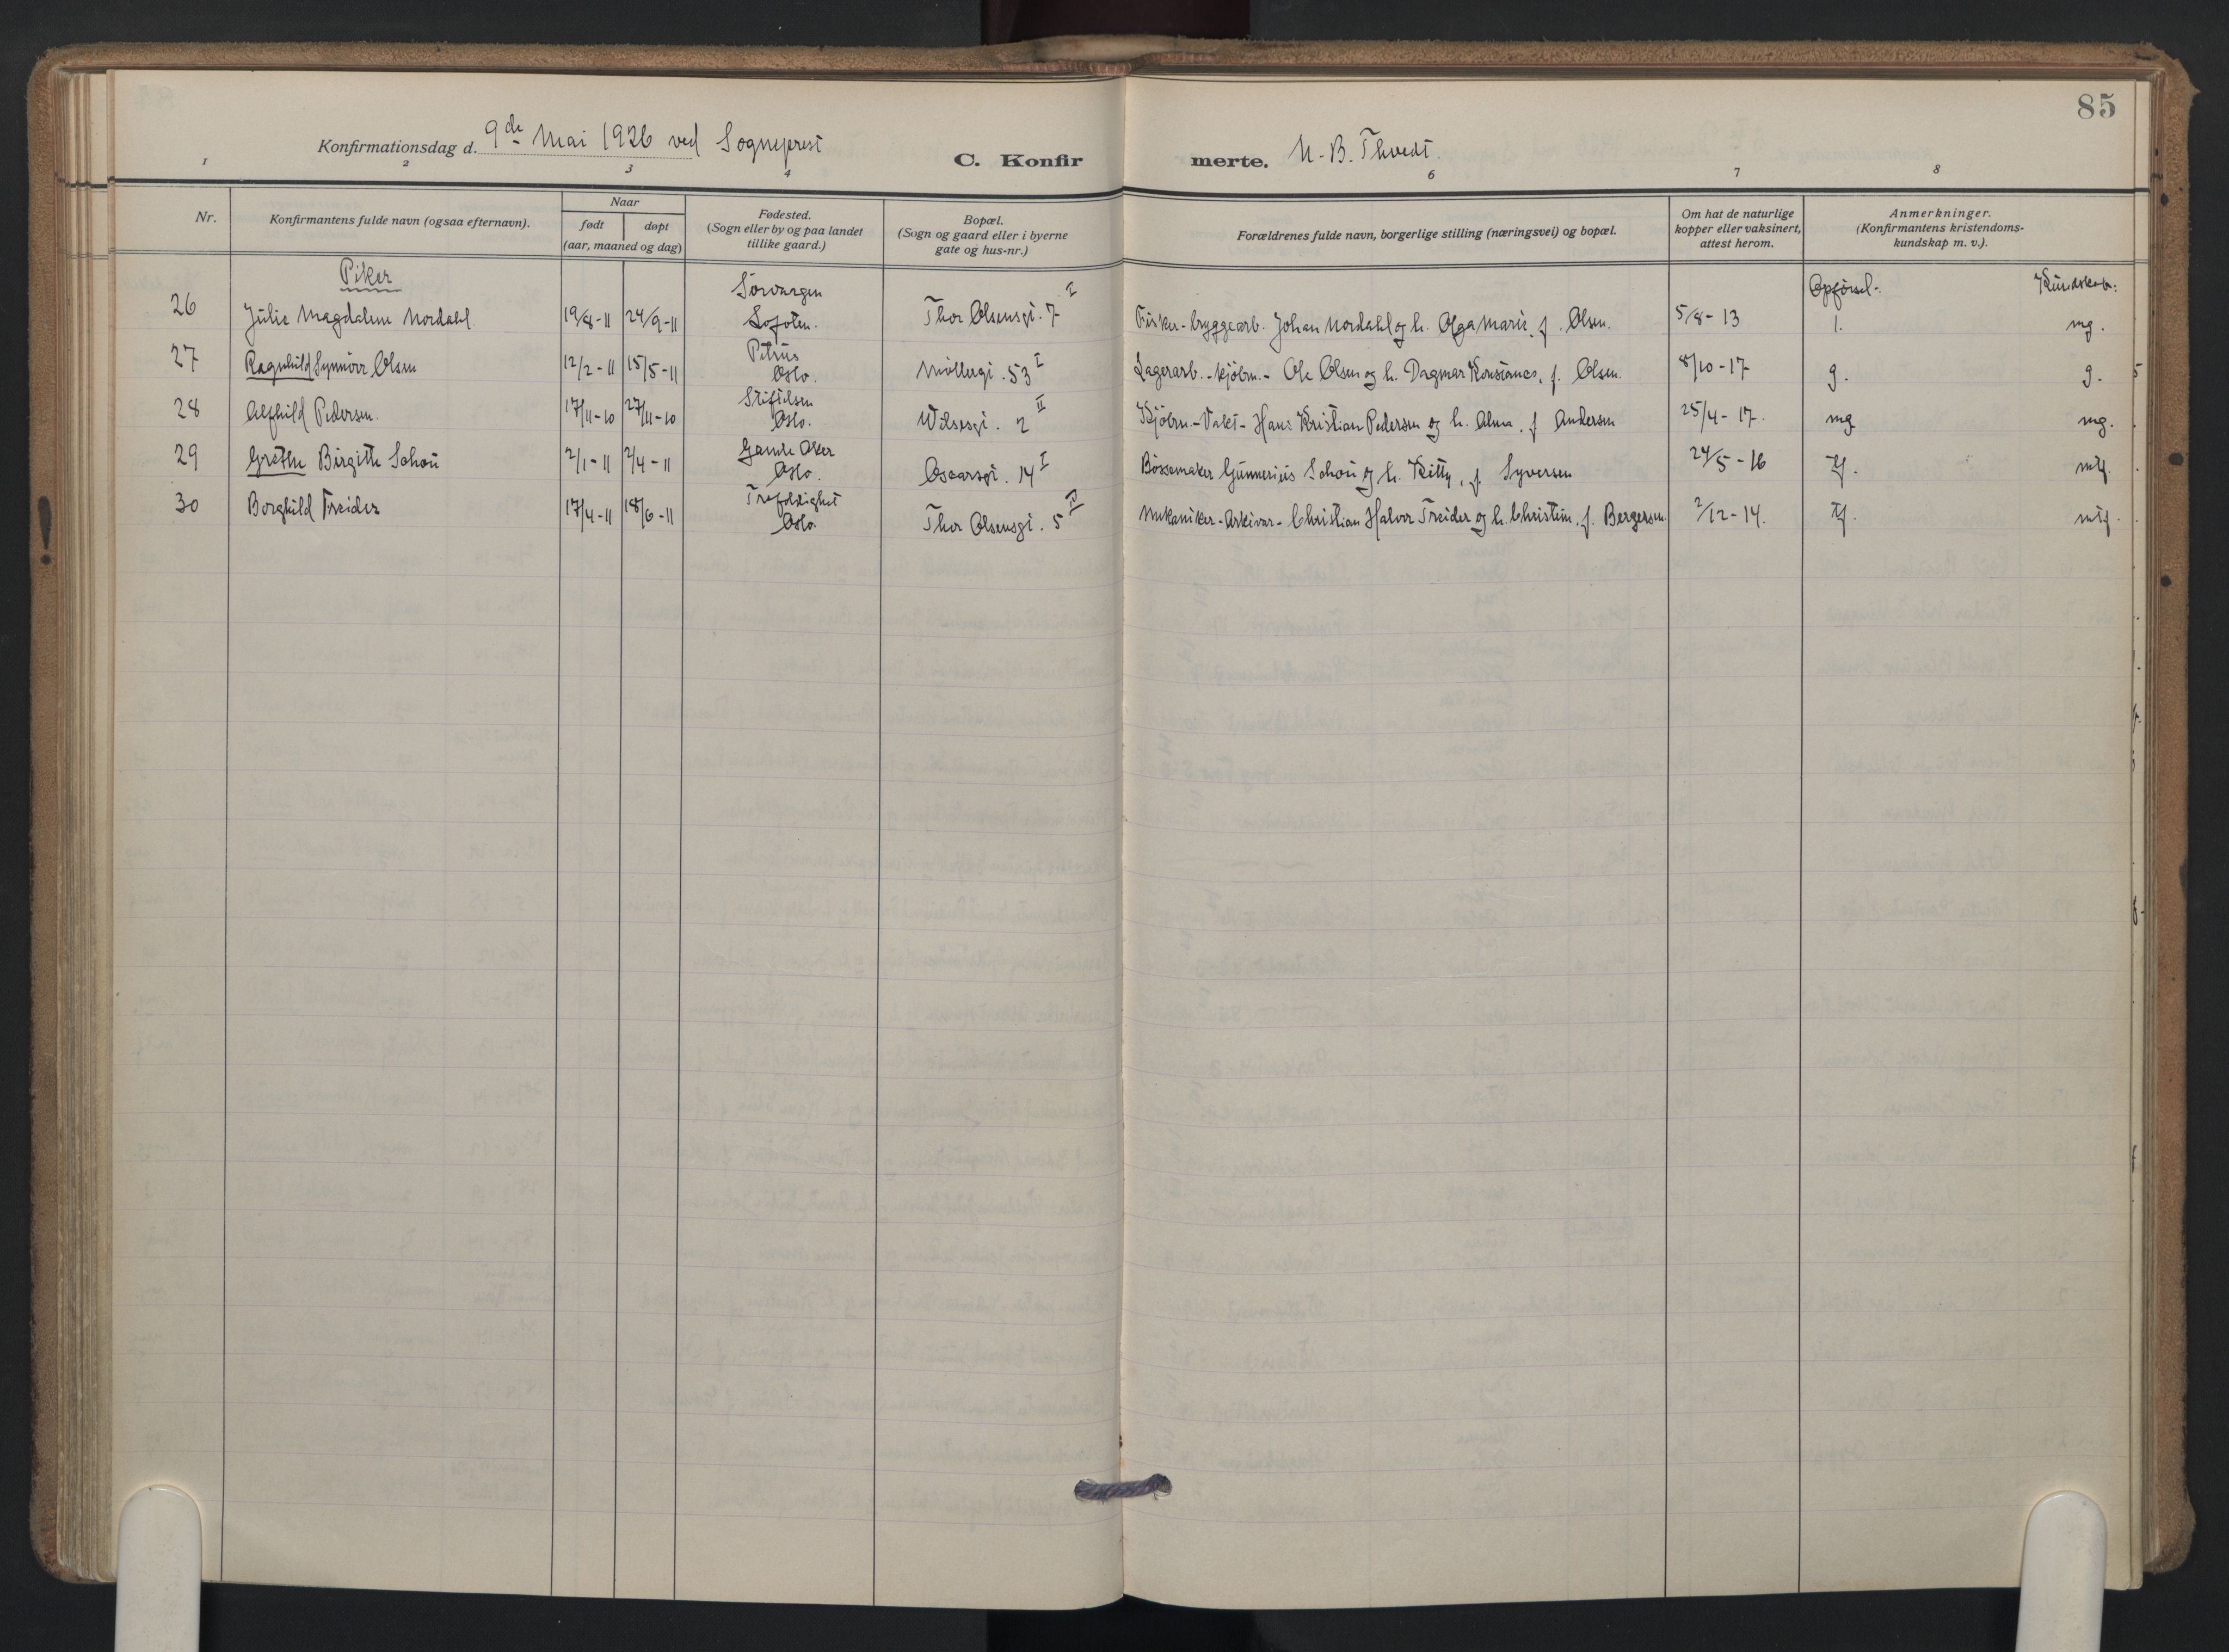 85
Konfirmationsdag d. 9de Mai 1926 ved Sogneprest
C. Konfirmerte. N. B. Thvedt.
1 2 3 4 6 7 8
Nr. Konfirmantens fulde navn (ogsaa efternavn). Naar født døpt (aar, maaned og dag) Fødested. (Sogn eller by og paa landet tillike gaard.) Bopæl. (Sogn og gaard eller i byerne gate og hus-nr.) Forældrenes fulde navn, borgerlige stilling (næringsvei) og bopæl. Om hat de naturlige kopper eller vaksinert, attest herom. Anmerkninger. (Konfirmantens kristendomskundskap m. v.).
Piker Opførsel. Kundskab:
26 Julie Magdalene Nordahl. 19/8-11 24/9-11 Sørvaagen Lofoten. Thor Olsensgt. 7 I Fisker-bryggearb. Johan Nordahl og h. Olga Marie, f. Olsen. 5/8-13 1. mg.
27 Ragnhild Synnöve Olsen 12/2-11 15/5-11 Petrus Oslo. Møllergt. 53 I Lagerarb.-kjöbm.- Ole Olsen og h. Dagmar Konstance, f. Olsen. 8/10-17 g. g.
28 Alfhild Pedersen. 17/11-10 27/11-10 Stiftelsen Oslo. Wilsesgt. 2 II Kjöbm.-Vakt- Hans Kristian Pedersen og h. Alma, f Andersen 25/4-17. mg mg.
29 Grethe Birgitte Schou 2/1-11 2/4-11 Gamle Aker Oslo. Oscarsgt. 14 I Bössemaker Gunnerius Schou og h. Kitty, f. Syversen 24/5-16 Tf. mtf.
30 Borghild Treider 17/4-11 18/6-11 Trefoldighet Oslo. Thor Olsensgt. 5 IV Mekaniker-Arkivar- Christian Halvor Treider og h. Christine, f. Bergersen. 2/12-14. Tf. mtf.